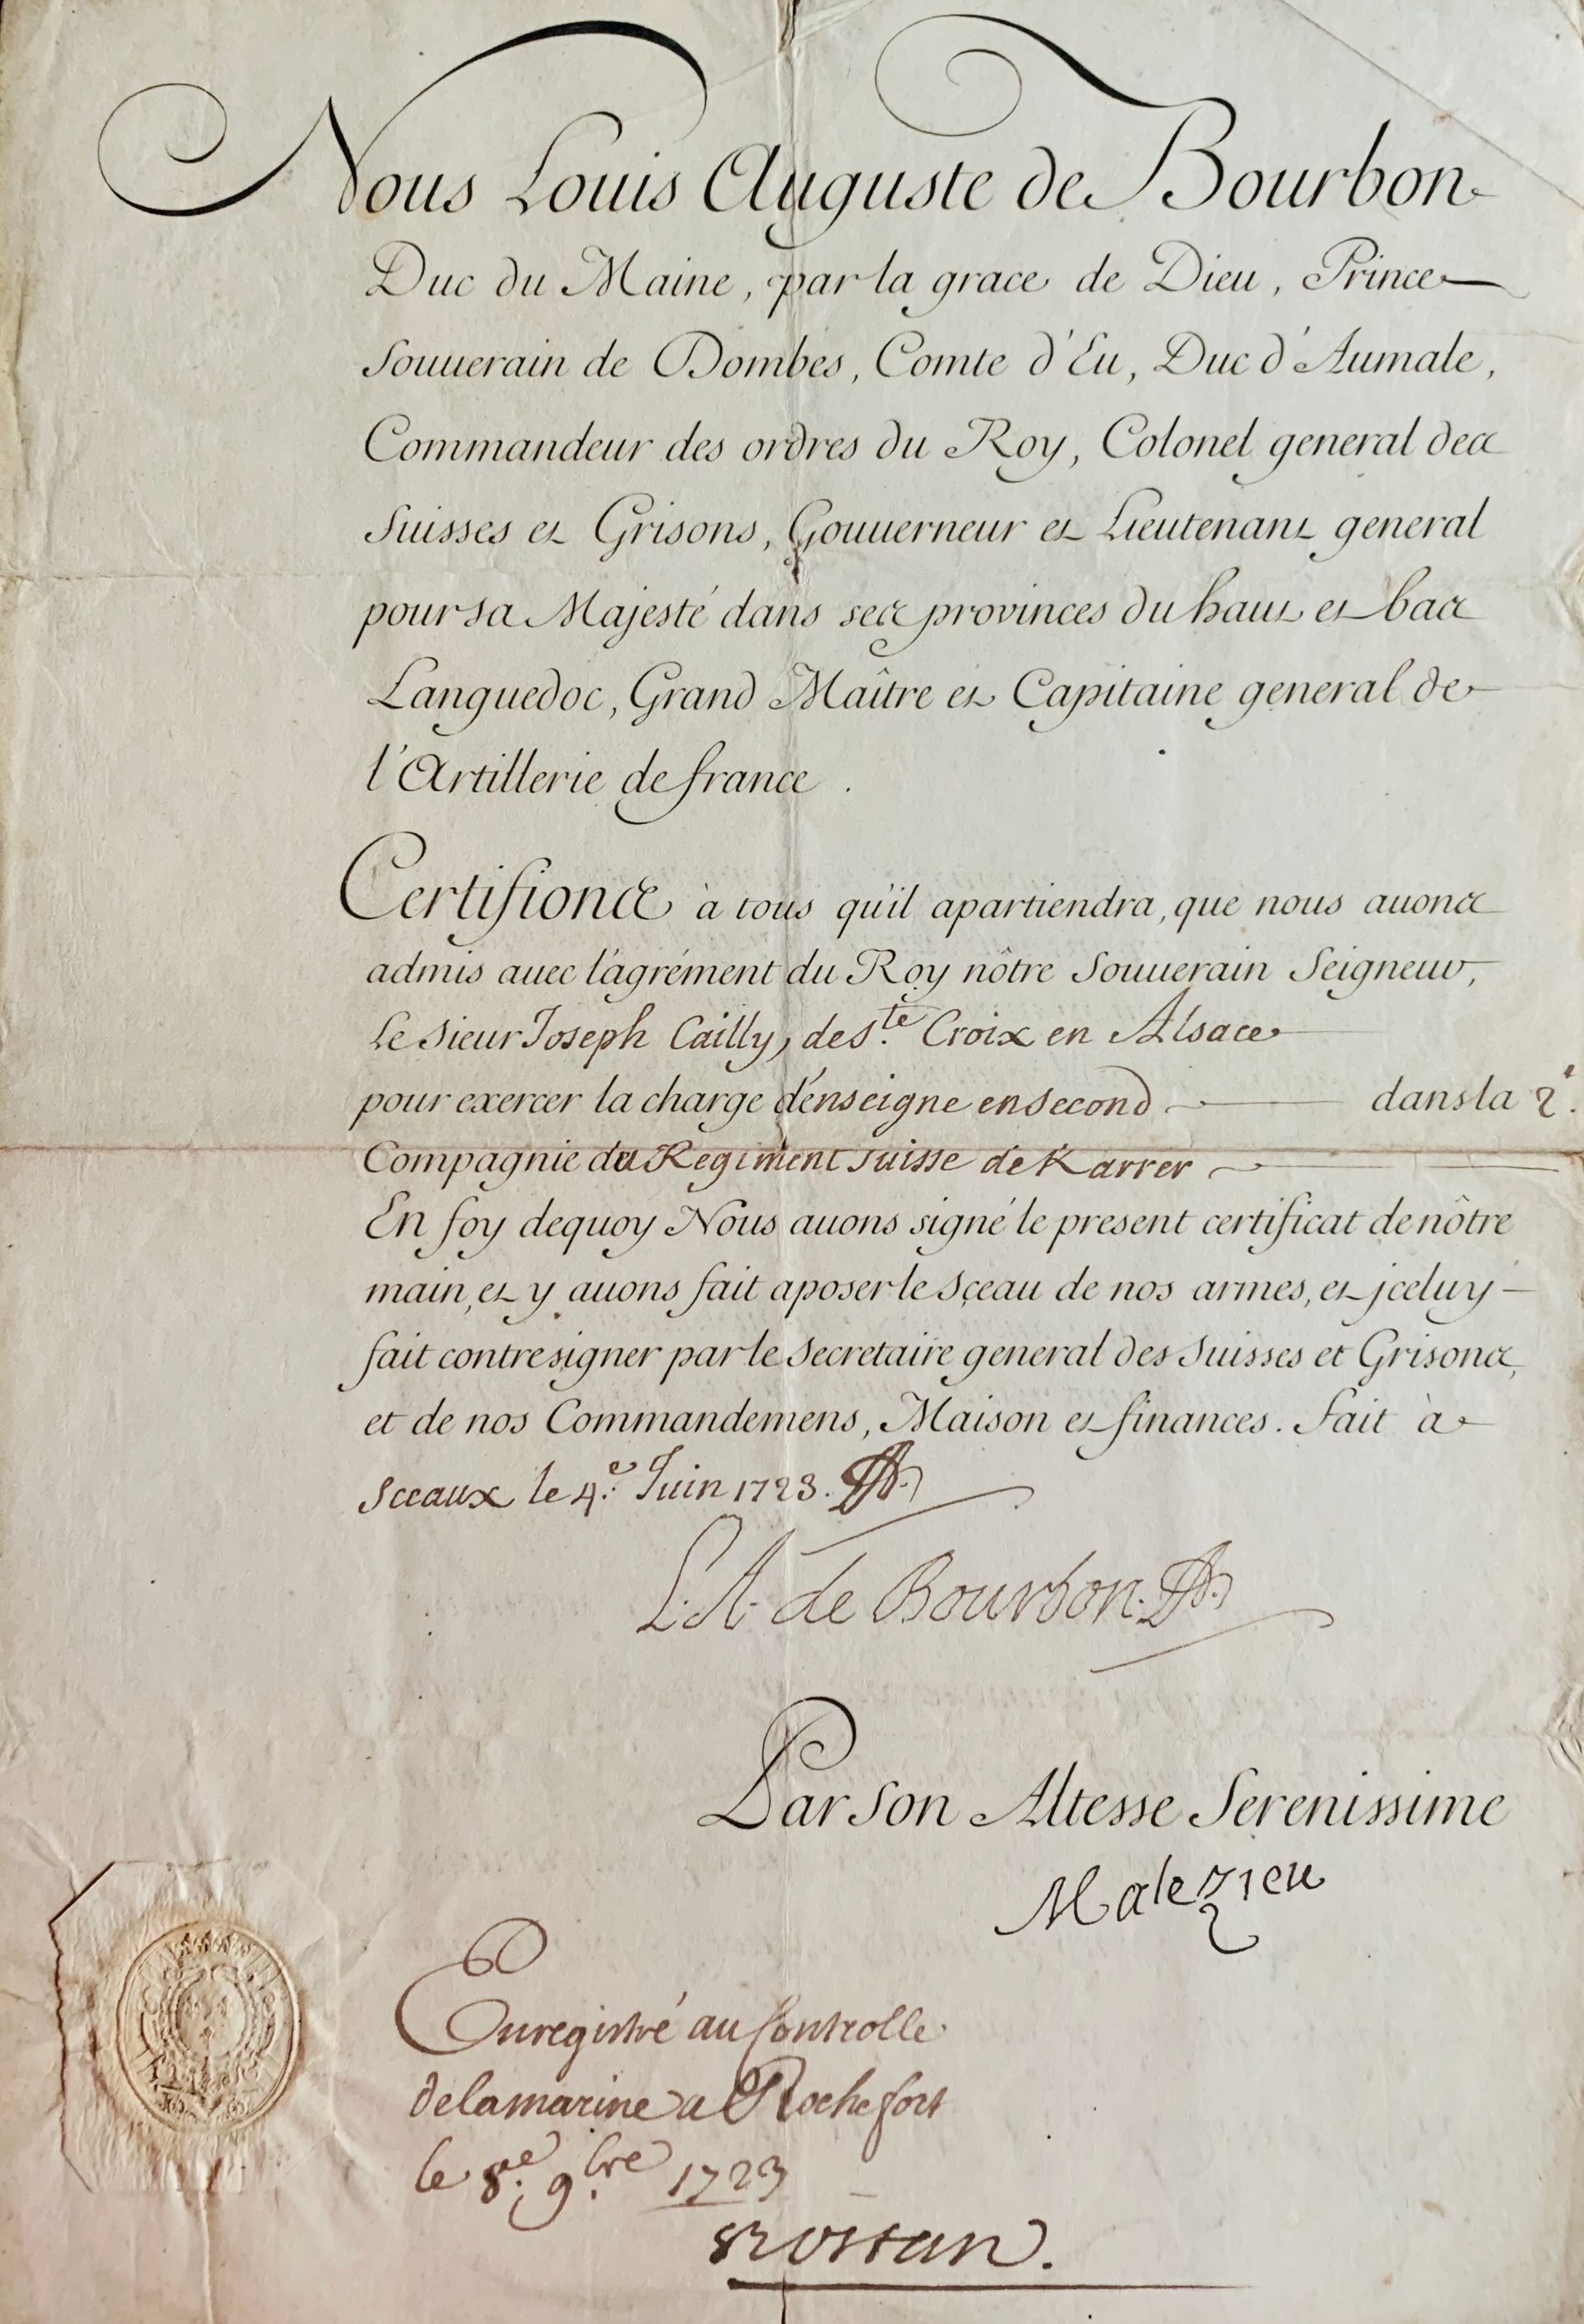 Nous Louis Auguste de Bourbon
Duc du Maine, par la grace de Dieu, Prince
Souuerain de Dombes, Comte d'Eu, Duc d'Aumale,
Commandeur des ordres du Roy, Colonel general des
Suisses et Grisons, Gouuerneur et Lieutenant general
pour sa Majesté dans ses provinces du haut et bas
Languedoc, Grand Maître et Capitaine general de
l'Artillerie de france.
Certifions à tous qu'il apartiendra, que nous auons
admis auec l'agrément du Roy nôtre Souuerain Seigneur,
Le Sieur Joseph Cailly, de Ste. Croix en Alsace
pour exercer la charge d'enseigne en second dans la 2e.
Compagnie du Regiment suisse de Karrer
En foy dequoy Nous auons signé le present certificat de nôtre
main, et y auons fait aposer le Sçeau de nos armes, et jceluy
fait contresigner par le Secretaire general des Suisses et Grisons,
et de nos Commandemens, Maison et finances. Fait à
Sceaux le 4e. Juin 1723.
L. A. de Bourbon.
Par Son Altesse Serenissime
Malezieu
Enregistré au Controlle
de la marine a Rochefort
le 8e. 9bre 1723